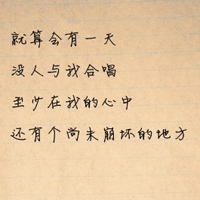 就算会有一天
没人与我合唱
至少在我的心中
还有个尚未崩坏的地方